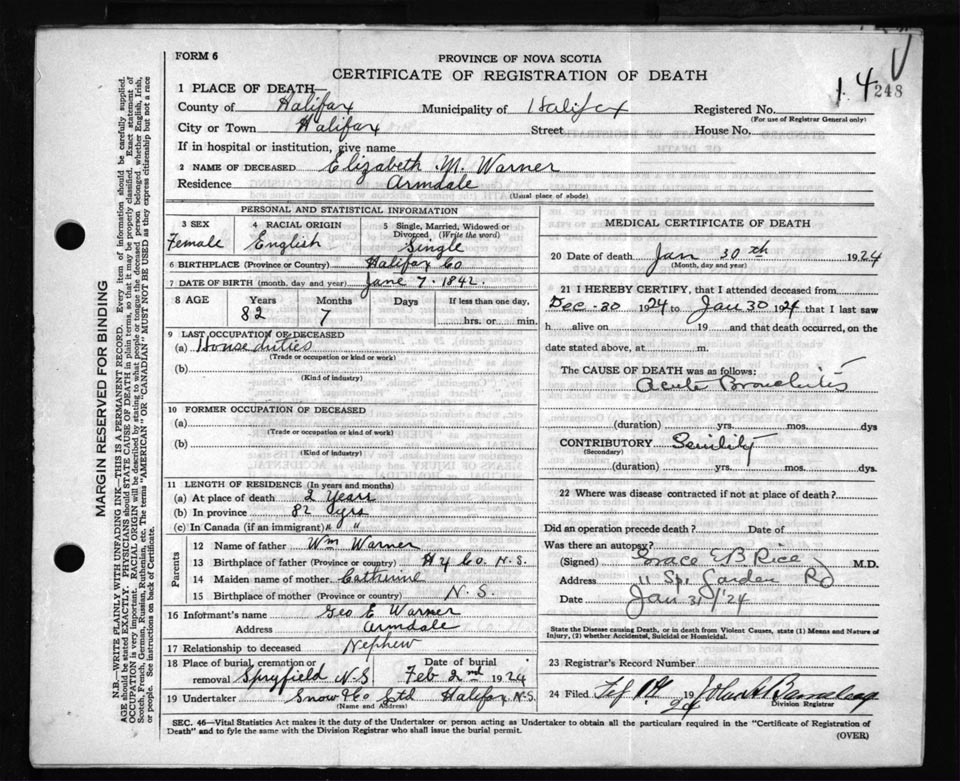 1.4 248
FORM 6
PROVINCE OF NOVA SCOTIA
CERTIFICATE OF REGISTRATION OF DEATH
1 PLACE OF DEATH—
County of Halifax Municipality of Halifax Registered No.
(For use of Registrar General only)
City or Town Halifax Street House No.
If in hospital or institution, give name
2 NAME OF DECEASED Elizabeth M. Warner
Residence Armdale
(Usual place of abode)
PERSONAL AND STATISTICAL INFORMATION
3 SEX 4 RACIAL ORIGIN 5 Single, Married, Widowed or Divorced (Write the word)
Female English Single
6 BIRTHPLACE (Province or Country) Halifax Co
7 DATE OF BIRTH (month, day, and year) June 7. 1842.
8 AGE Years Months Days If less than one day,
82 7 hrs. or min.
9 LAST OCCUPATION OF DECEASED
(a) House duties
(Trade or occupation or kind or work)
(b)
(Kind of industry)
10 FORMER OCCUPATION OF DECEASED
(a)
(Trade or occupation or kind of work)
(b)
(Kind of industry)
11 LENGTH OF RESIDENCE (In years and months)
(a) At place of death 2 Years
(b) In province 82 yrs
(c) In Canada (if an immigrant) " "
Parents
12 Name of father Wm Warner
13 Birthplace of father (Province or country) Hfx Co. N.S.
14 Maiden name of mother Catherine
15 Birthplace of mother (Province or country) N.S.
16 Informant's name Geo E Warner
Address Armdale
17 Relationship to deceased Nephew
18 Place of burial, cremation or removal Spryfield N.S. Date of burial Feb 2nd 1924
19 Undertaker Snow & Co Ltd Halifax N.S.
(Name and Address)
MEDICAL CERTIFICATE OF DEATH
20 Date of death Jan 30th 1924
(Month, day and year)
21 I HEREBY CERTIFY, that I attended deceased from
Dec-30 1924 to Jan 30 1924 that I last saw
h. alive on 19 and that death occurred, on the
date stated above, at m.
The CAUSE OF DEATH was as follows:
Acute Bronchitis
(duration) yrs. mos. dys
CONTRIBUTORY Senility
(Secondary)
(duration) yrs. mos. dys.
22 Where was disease contracted if not at place of death?
Did an operation precede death? Date of
Was there an autopsy?
(Signed) Grace E B Rice M.D.
Address 11 Spr Garden Rd
Date Jan 31/24
State the Disease causing Death, or in death from Violent Causes, state (1) Means and Nature of
Injury, (2) whether Accidental, Suicidal or Homicidal.
23 Registrar's Record Number
24 Filed 19 24
Division Registrar
SEC. 46—Vital Statistics Act makes it the duty of the Undertaker or person acting as Undertaker to obtain all the particulars required in the "Certificate of Registration of
Death" and to fyle the same with the Division Registrar who shall issue the burial permit.
(OVER)
MARGIN RESERVED FOR BINDING
N.B.—WRITE PLAINLY WITH UNFADING INK—THIS IS A PERMANENT RECORD. Every item of information should be carefully supplied.
AGE should be stated EXACTLY. PHYSICIANS should STATE CAUSE OF DEATH in plain terms, so that it may be properly classified. Exact statement of
OCCUPATION is very important. RACIAL ORIGIN will be described by stating to what people or tongue the deceased person belonged, whether English, Irish,
Scotch, French, German, Russian, Ruthenian, etc. The terms "AMERICAN" OR "CANADIAN" MUST NOT BE USED as they express citizenship but not a race
or people. See instructions on back of Certificate.